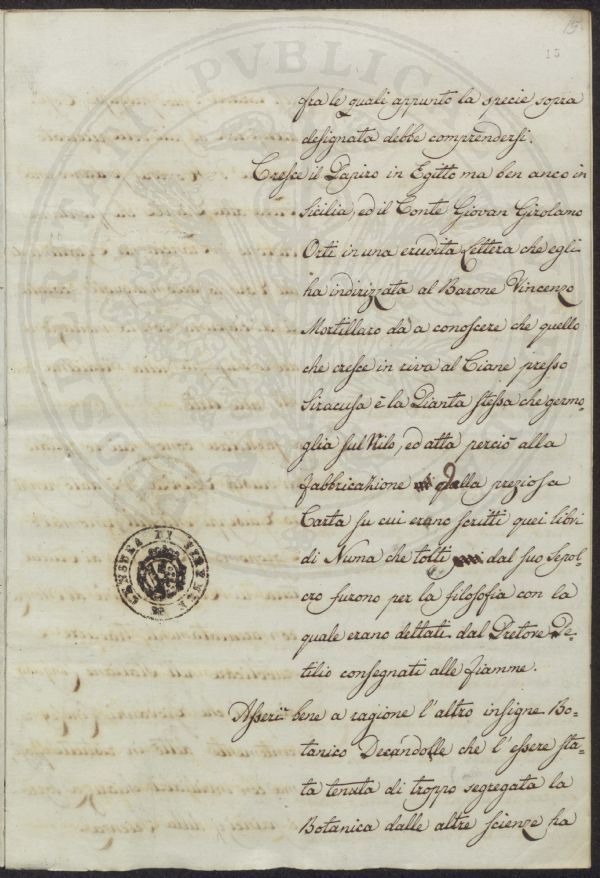 15
15
fra le quali appunto la specie sopra
designata debbe comprendersi.
Cresce il Papiro in Egitto ma ben anco in
Sicilia, ed il Conte Giovan Girolamo
Orti in una erudita Lettera che egli
ha indirizzata al Barone Vincenzo
Mortillaro dà a conoscere che quello
che cresce in riva al Ciane presso
Siracusa è la Pianta stessa che germo=
glia sul Nilo, ed atta perciò alla
fabbricazione della preziosa
Carta su cui erano scritti quei libri
di Numa che tolti dal suo Sepol=
cro furono per la filosofia con la
quale erano dettati dal Pretore Pe=
tilio consegnati alle fiamme.
Asserì bene a ragione l'altro insigne Bo=
tanico Decandolle che l'essere sta=
ta tenuta di troppo segregata la
Botanica dalle altre scienze ha
CENSURA DI FIRENZE